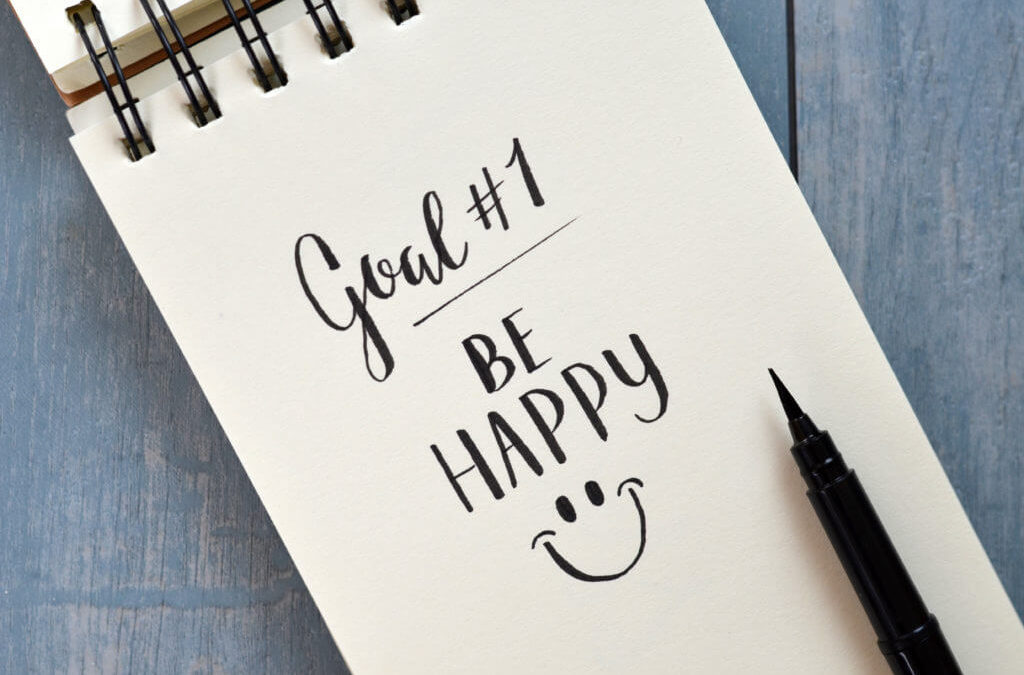 Goal #1
BE
HAPPY